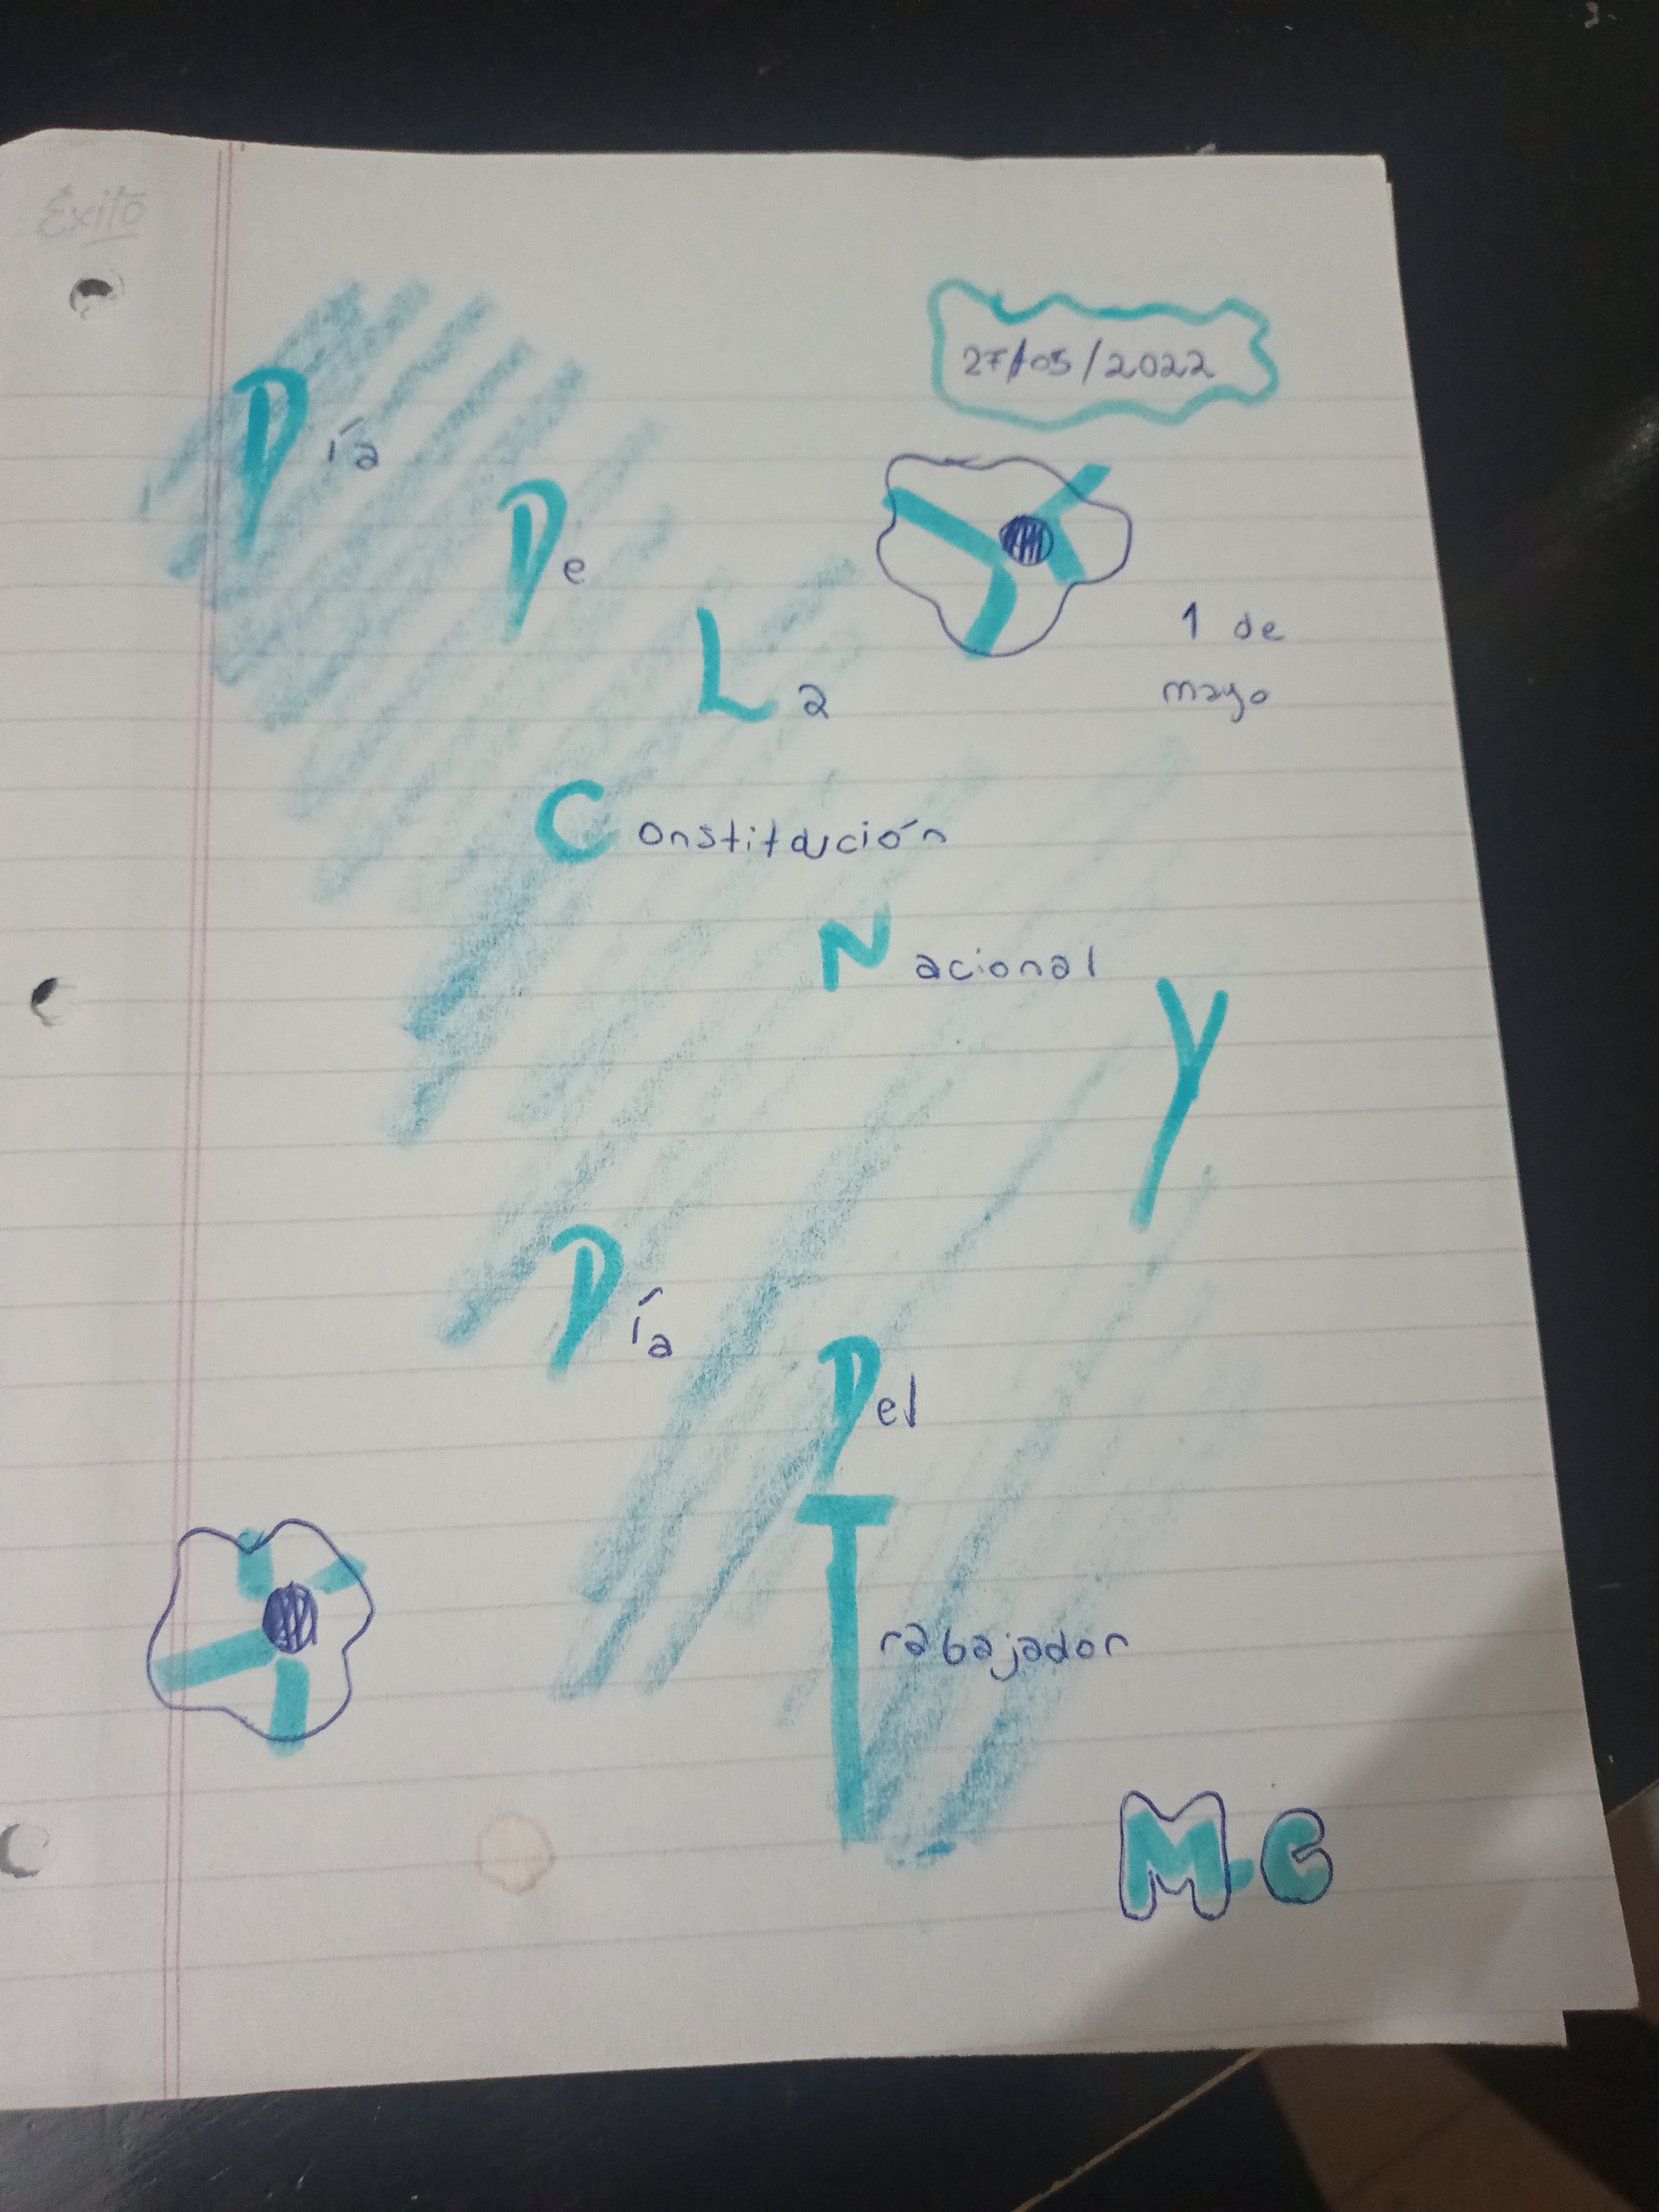 Éxito
27/05/2022
Día
De
La
1 de
mayo
Constitución
Nacional
Y
Día
Del
Trabajador
M.C